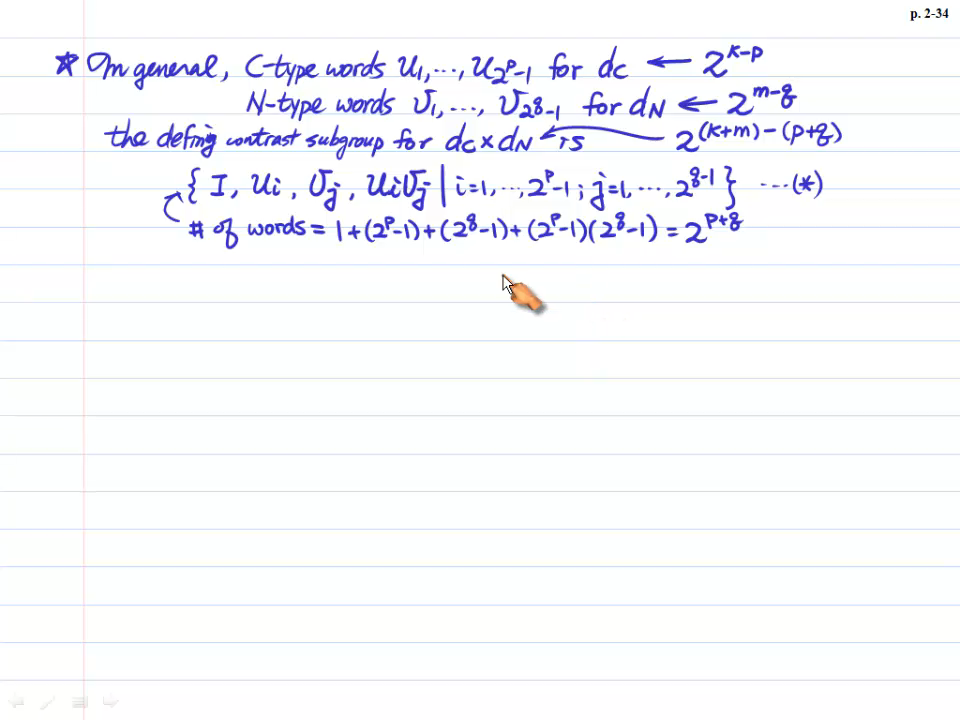 p. 2-34
* In general, C-type words U₁, ..., U_{2^p-1} for d_C ← 2^{k-p}
N-type words V₁, ..., V_{2^q-1} for d_N ← 2^{m-q}
the defining contrast subgroup for d_C × d_N is ← 2^{(k+m)-(p+q)}
{ I, U_i, V_j, U_iV_j | i=1, ..., 2^p-1; j=1, ..., 2^{q-1} } ...(*)
# of words = 1+(2^p-1)+(2^q-1)+(2^p-1)(2^q-1) = 2^{p+q}